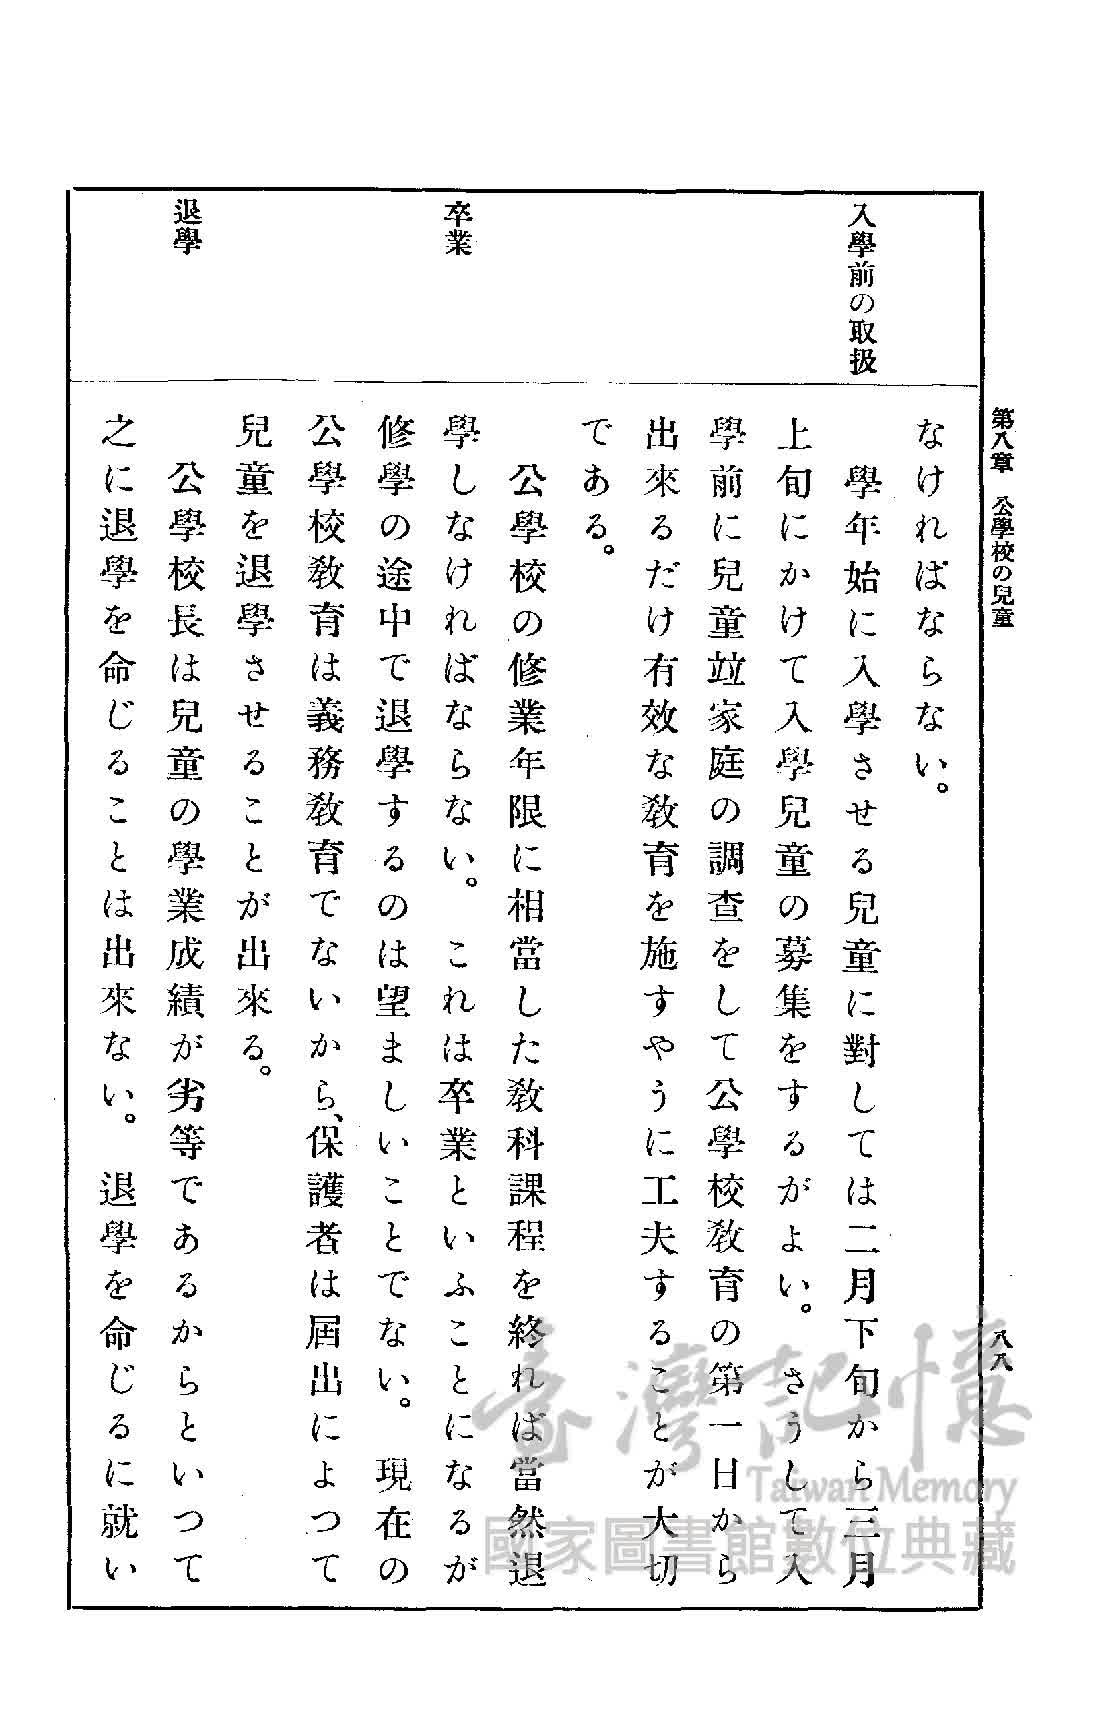 第八章　公學校の兒童
八八
入學前の取扱
卒業
退學
なければならない。
學年始に入學させる兒童に對しては二月下旬から三月
上旬にかけて入學兒童の募集をするがよい。さうして入
學前に兒童竝家庭の調查をして公學校敎育の第一日から
出來るだけ有效な敎育を施すやうに工夫することが大切
である。
公學校の修業年限に相當した敎科課程を終れば當然退
學しなければならない。これは卒業といふことになるが
修學の途中で退學するのは望ましいことでない。現在の
公學校敎育は義務敎育でないから、保護者は屆出によつて
兒童を退學させることが出來る。
公學校長は兒童の學業成績が劣等であるからといつて
之に退學を命じることは出來ない。退學を命じるに就い
臺灣記憶
Taiwan Memory
國家圖書館數位典藏